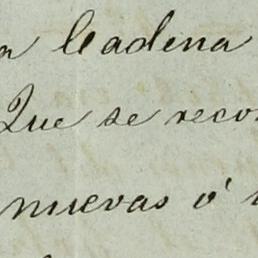 a Cadena
Que se reco
nuevas ó